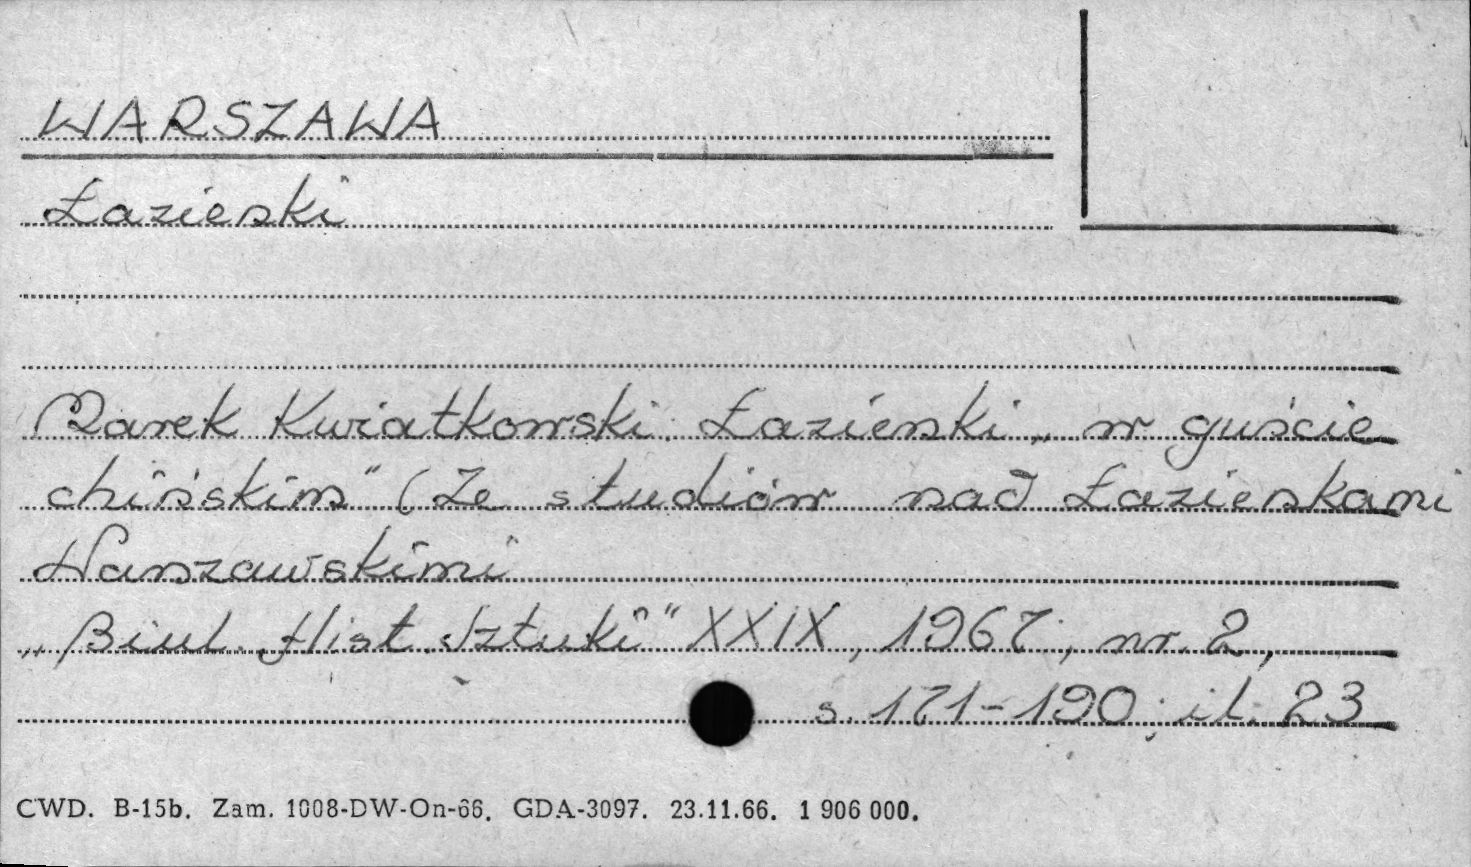 WARSZAWA
Łazienki
Marek Kwiatkowski. Łazienki „w guście
chińskim" (Ze studiów nad Łazienkami
Warszawskimi
„Biul. Hist. Sztuki" XXIX, 1967, nr. 2,
s. 171-190; il. 23
CWD. B-15b. Zam. 1008-DW-On-66. GDA-3097. 23.11.66. 1 906 000.